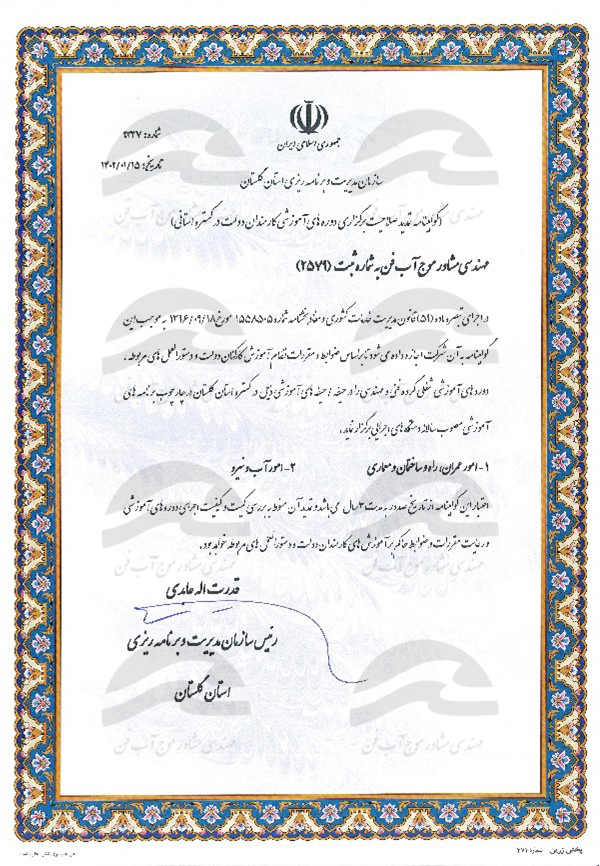 جمهوری اسلامی ایران
شماره: ۲۲۳۷
تاریخ: ۱۴۰۲/۰۱/۱۵
سازمان مدیریت و برنامه ریزی استان گلستان
(گواهینامه تمدید صلاحیت برگزاری دوره های آموزشی کارمندان دولت در گستره استانی)
مهندسی مشاور موج آب فن به شماره ثبت (۲۵۷۹)
در اجرای تبصره ماده (۵۹) قانون مدیریت خدمات کشوری و مفاد بخشنامه شماره ۱۵۵۸۵۰۵ مورخ ۱۳۹۶/۰۹/۱۸ به موجب این
گواهینامه به آن شرکت اجازه داده می شود تا بر اساس ضوابط و مقررات نظام آموزش کارکنان دولت و دستورالعمل های مربوطه ،
دوره های آموزشی شغلی گروه فنی و مهندسی را در حیطه / حیطه های آموزشی ذیل در گستره استان گلستان در چارچوب برنامه های
آموزشی مصوب سالانه دستگاه های اجرایی برگزار نماید.
۱- امور عمران، راه و ساختمان و معماری ۲- امور آب و نیرو
اعتبار این گواهینامه از تاریخ صدور به مدت ۳ سال می باشد و تمدید آن منوط به بررسی کمیت و کیفیت اجرای دوره های آموزشی
و رعایت مقررات و ضوابط حاکم بر آموزش های کارمندان دولت و دستورالعمل های مربوطه خواهد بود.
قدرت اله عابدی
رئیس سازمان مدیریت و برنامه ریزی
استان گلستان
مهندسی مشاور موج آب فن
مهندسی مشاور موج آب فن
پخش زرین شماره ۲۷۱